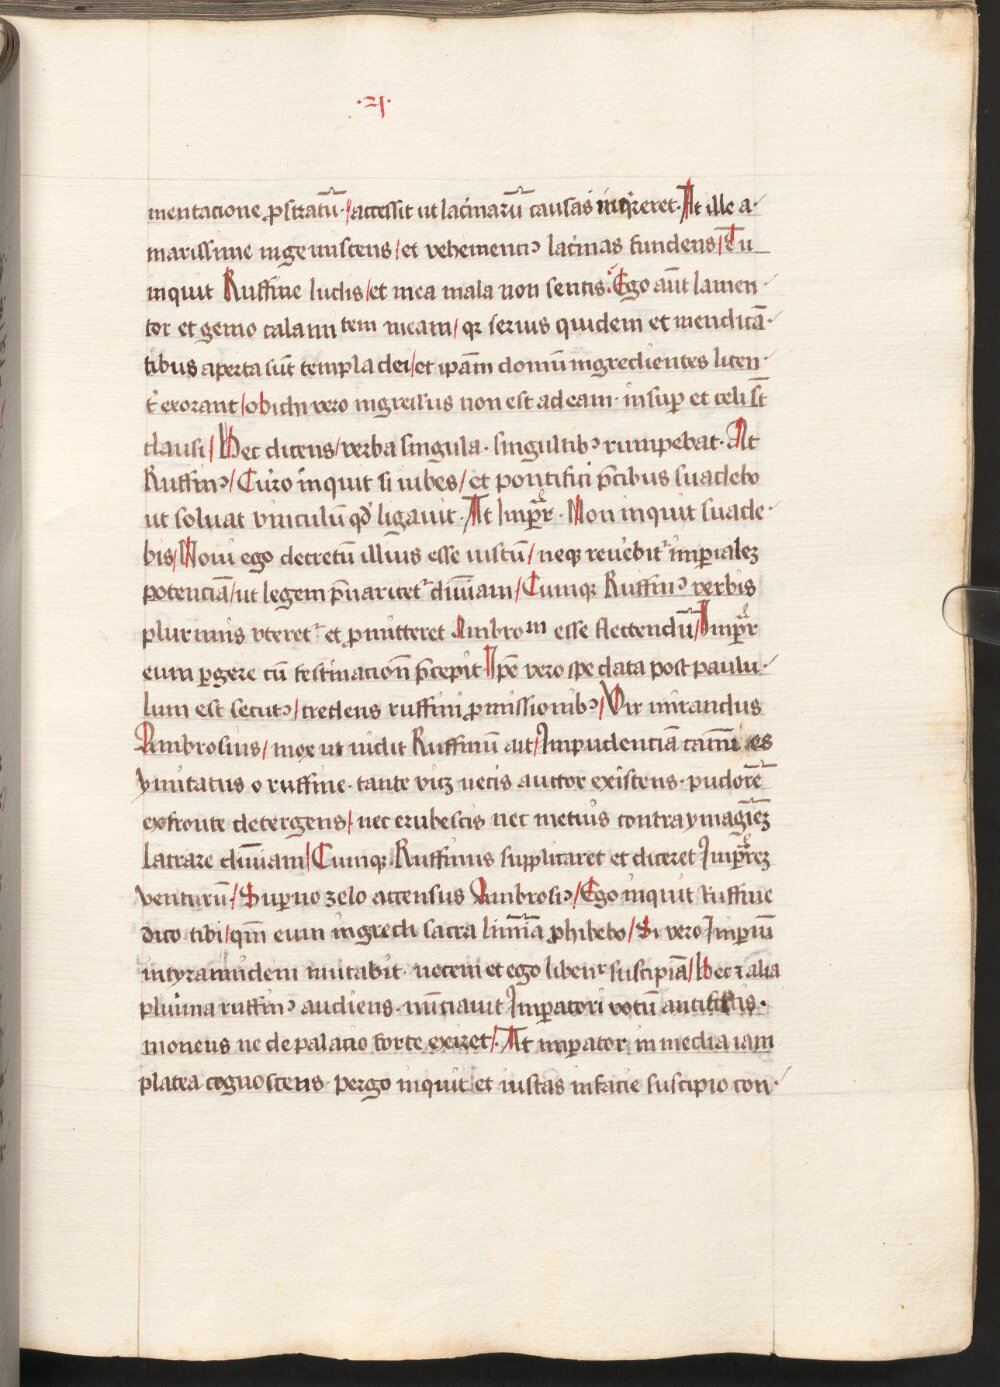 ·21·
mentacione ꝓstratū·/accessit ut lacrimarū causas inqͥreret· At ille a·
marissime ingemiscens/et vehementiꝰ lacrimas fundens/Tu
inquit Ruffine ludis/et mea mala non sentis: Ego aūt lamen·
tor et gemo calamitatem meam/ qꝛ seruis quidem et mendicā·
tibus aperta sūt templa dei/et ip̄am domū ingredientes licen·
t᷑ exorant/obichi vero ingressus non est ad eam· insuꝑ et celi sͭ
clausi/Hec dicens/verba singula· singultibꝰ rumpebat· At
Ruffinꝰ/Curro inquit si iubes/et pontifici p̄cibus suadebo
ut soluat vinculū qd̓ ligauit· At Imꝑr· Non inquit suade·
bis/Noui ego decretū illius esse iustū/ neqꝫ reuebit᷑ imꝑialeꝫ
potenciā/ut legem p̄uaricet᷑ diuīam/Cumqꝫ Ruffinꝰ verbis
plurimis vteret᷑ et ꝓmitteret Ambroᵐ esse flectendū/Imꝑr
eum ꝑgere cū festinacion̄ p̄cepit Ip̄e vero spe data post paulu·
lum est secutꝰ/credens ruffini ꝓmissionibꝰ/Vir mirandus
Ambrosius/ mox ut uidit Ruffinū ait/Impudenciā canū es
ymitatus o ruffine· tante vicꝫ necis auctor existens· pudorē
ex fronte detergens/ nec erubescis nec metuis contra ymagīeꝫ
latrare diuīam/Cumqꝫ Ruffinus supplicaret et diceret Imꝑreꝫ
venturū/Suꝑno zelo accensus Ambrosiꝰ/Ego inquit ruffine
dico tibi/qm̄ eum ingredi sacra limīa ꝓhibebo/Si vero Imꝑiū
in tyrannidem mutabit· necem et ego libent᷑ suscipiā/Hec ⁊ alia
plurima ruffinꝰ audiens· nūciauit Imꝑatori votū antistitis·
monens ne de palacio forte exiret/At imꝑator in media iam
platea cognoscens· pergo inquit et iustas in facie suscipio con·